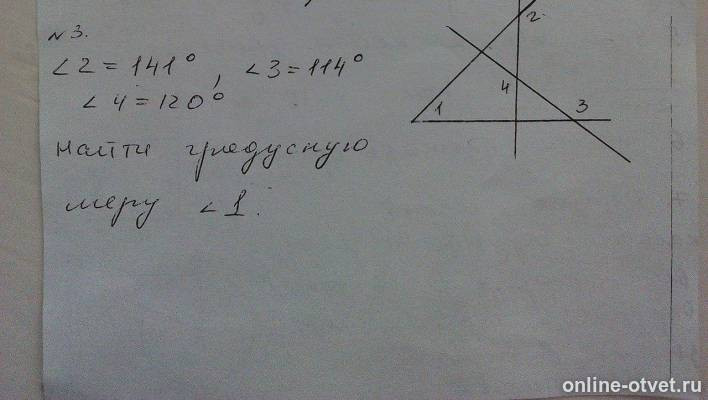 № 3.
∠2 = 141°, ∠3 = 114°
∠4 = 120°
найти градусную
меру ∠1.
2
4
1
3
online-otvet.ru